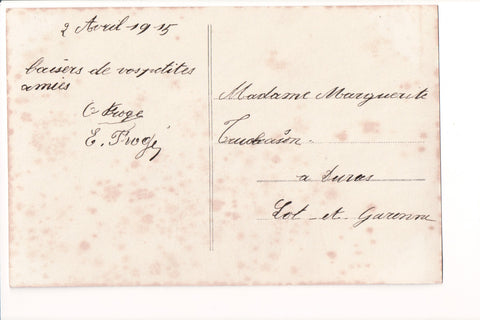 2 Avril 1915
baisers de vos petites
amies
E. Progé
Madame Marguerite
a Duras
Lot et Garonne